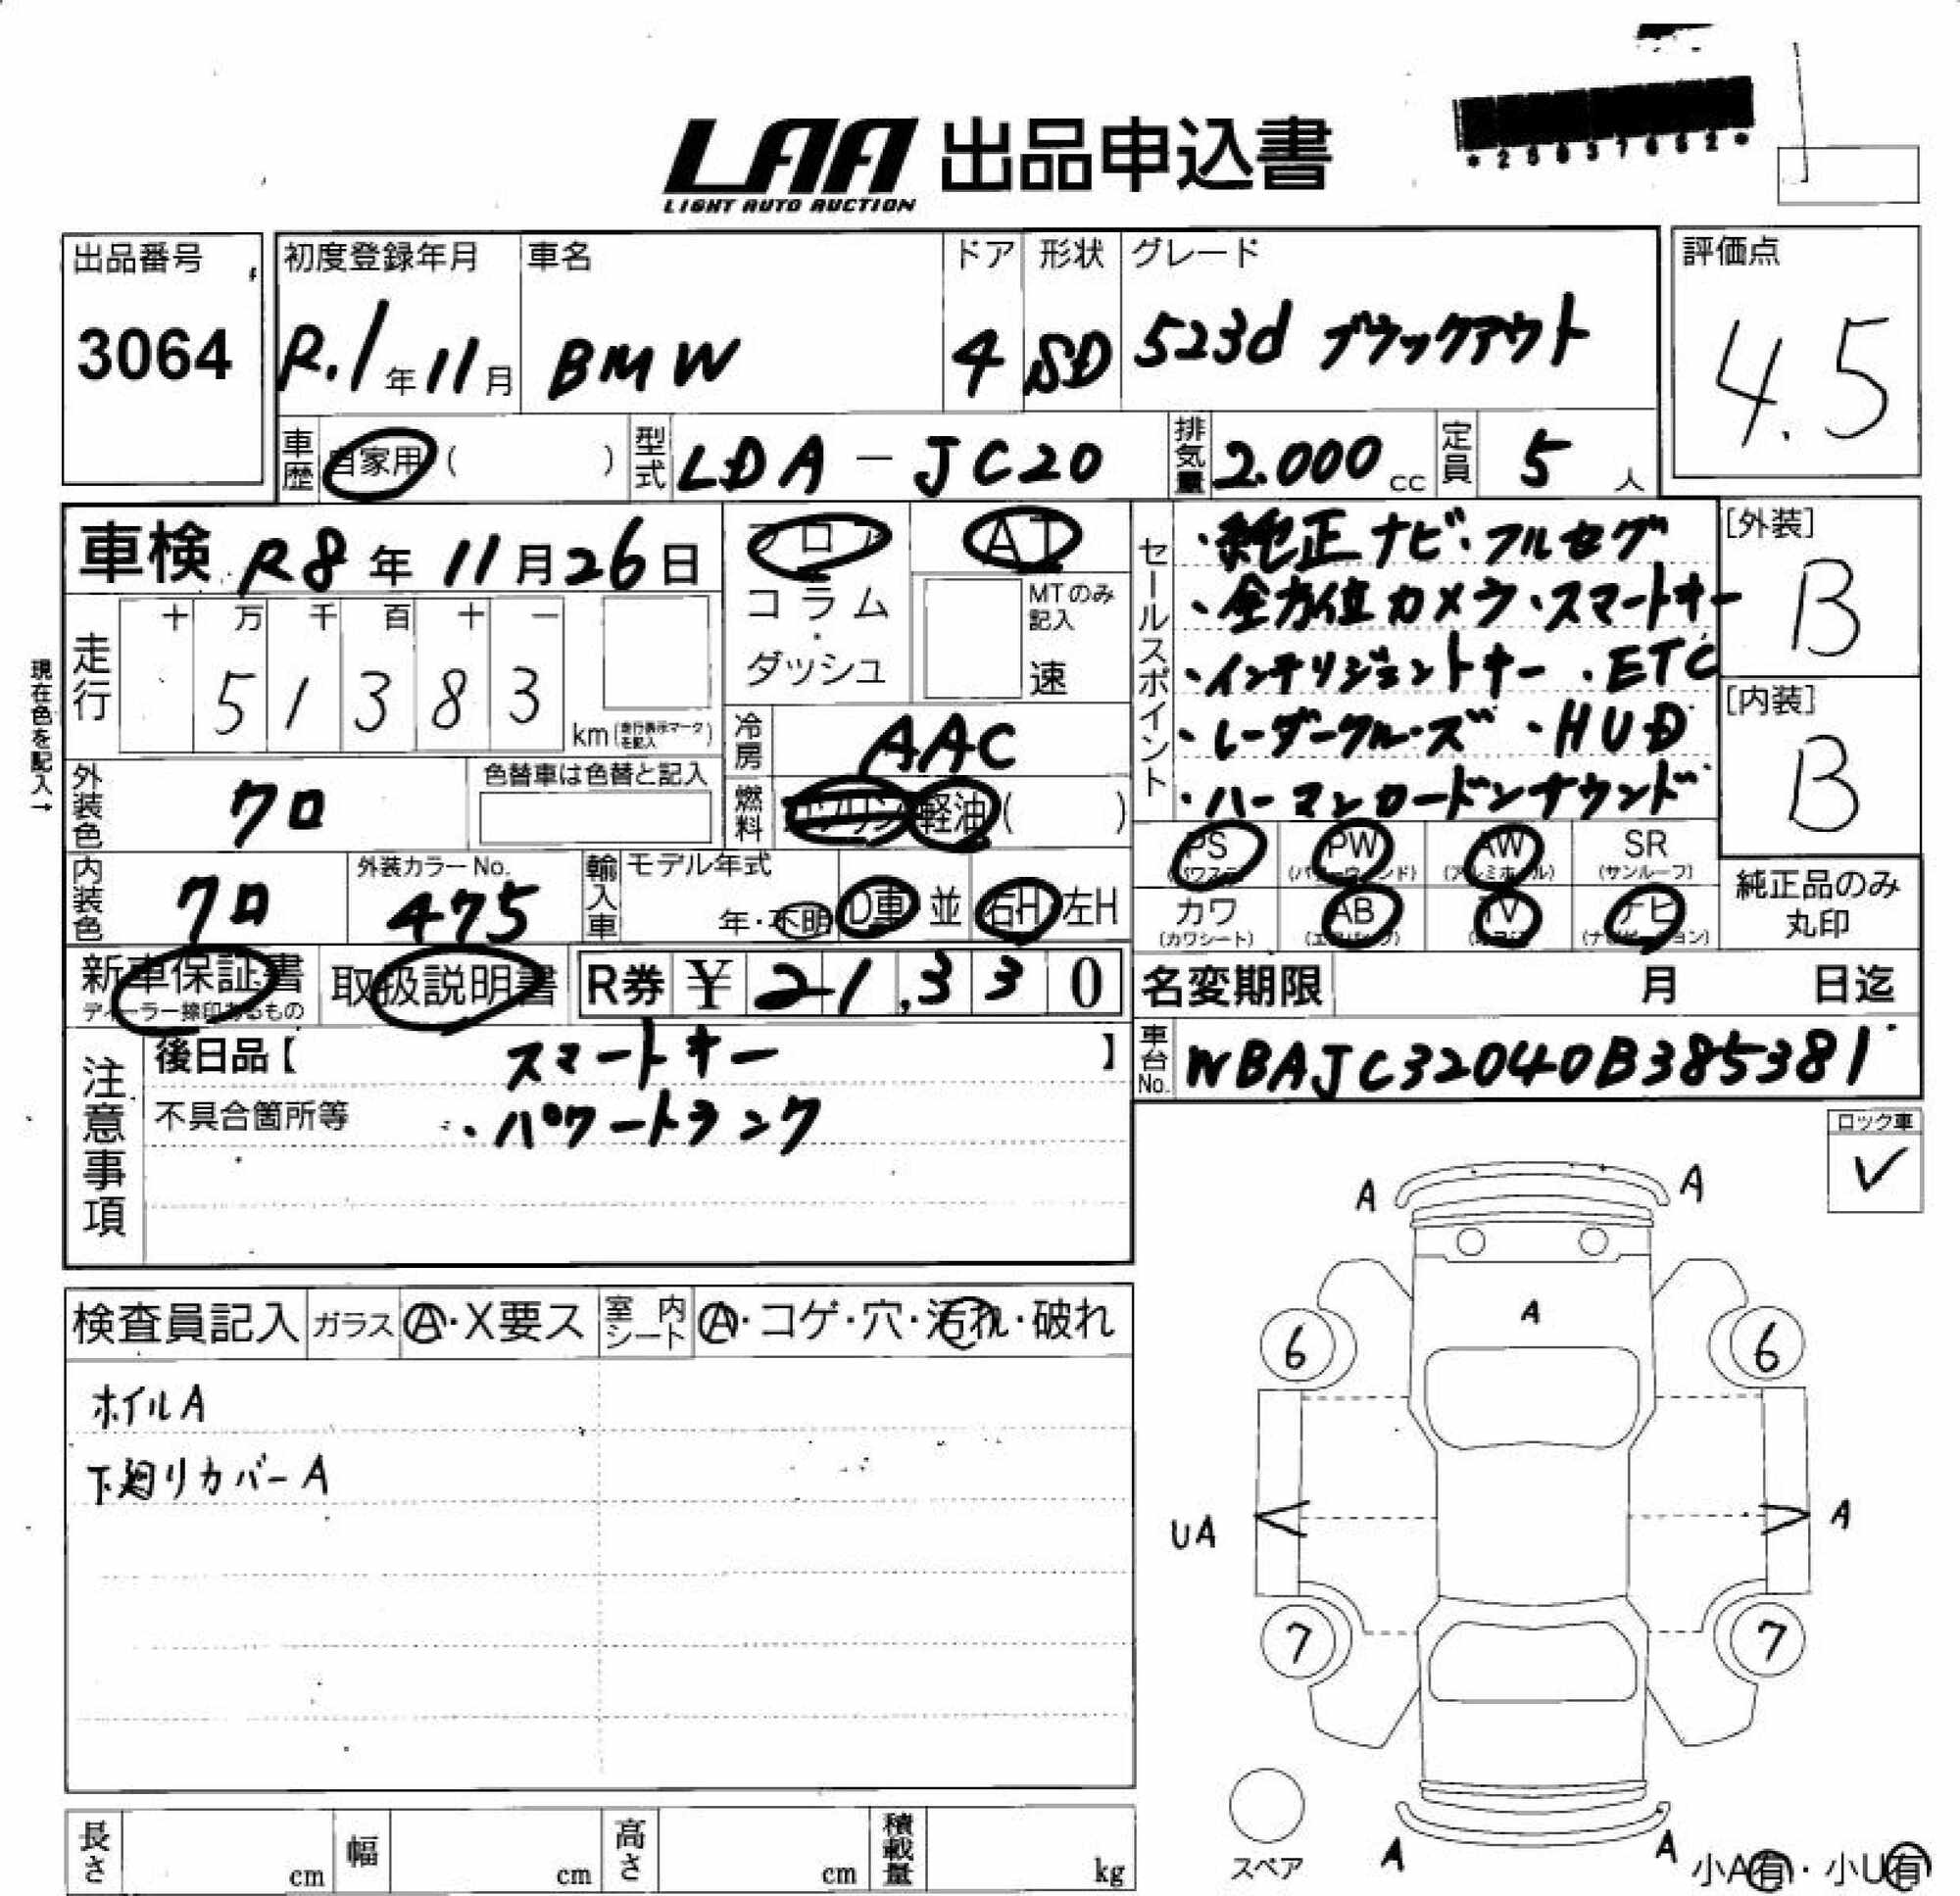 LAA 出品申込書
LIGHT AUTO AUCTION
*25037652*
出品番号
3064
初度登録年月
R.1年11月
車名
BMW
ドア
4
形状
SD
グレード
523d ブラックアウト
評価点
4.5
車歴 自家用 ( )
型式 LDA-JC20
排気量 2.000 cc
定員 5 人
車検 R8年11月26日
フロア
コラム・ダッシュ
AT
MTのみ記入
速
現在色を記入→
走行
十 万 千 百 十 一
5 1 3 8 3
km(走行表示マークを記入)
冷房 AAC
燃料 ガソリン 軽油 ( )
外装色 クロ
色替車は色替と記入
内装色 クロ
外装カラーNo.
475
輸入車
モデル年式
年・不明
D車 並
右H 左H
セールスポイント
・純正ナビ・フルセグ
・全方位カメラ・スマートキー
・インテリジェントキー ・ETC
・レーダークルーズ ・HUD
・ハーマンカードンサウンド
[外装]
B
[内装]
B
PS (パワステ)
PW (パワーウィンド)
AW (アルミホイル)
SR (サンルーフ)
カワ (カワシート)
AB (エアバッグ)
TV (テレビ)
ナビ (ナビゲーション)
純正品のみ
丸印
新車保証書
ディーラー捺印あるもの
取扱説明書
R券 ¥ 21,330
名変期限 月 日迄
車台No. WBAJC32040B385381
注意事項
後日品【 スマートキー 】
不具合箇所等 ・パワートランク
ロック車
✓
検査員記入
ガラス A・X要ス
室内シート A・コゲ・穴・汚れ・破れ
ホイルA
下廻りカバーA
A A
A
6 6
UA A
7 7
スペア
A A
小A有・小U有
長さ cm
幅 cm
高さ cm
積載量 kg